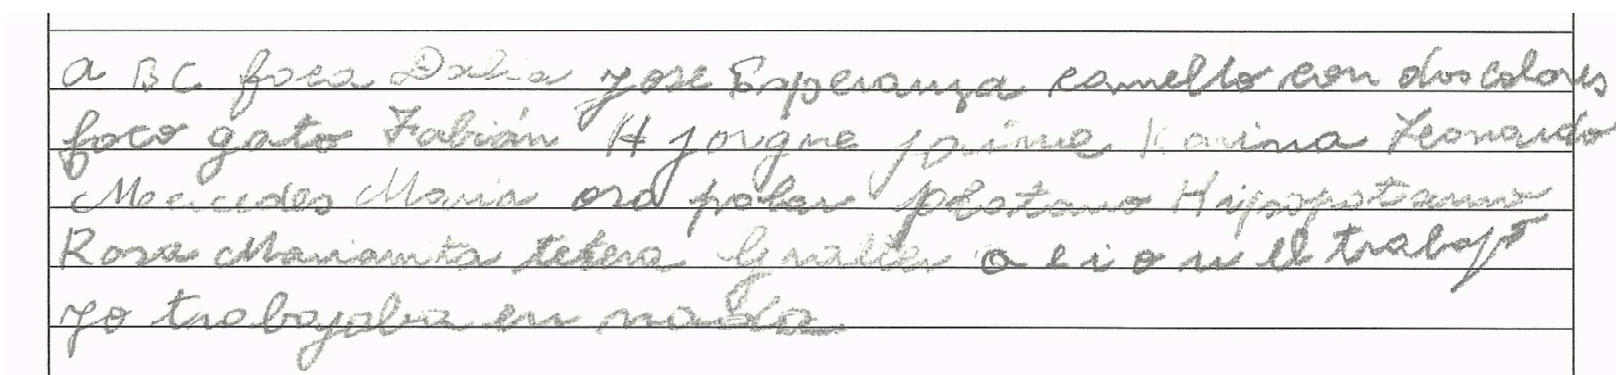 a BC foca Dalia Jose Esperanza camello con dos colores
foco gato Fabián H jorgne jaime Karina Leonardo
Mercedes Maria oso polar platano Hipopotamo
Rosa Marianita tetera a e i o u el trabajo
yo trabajaba en nada